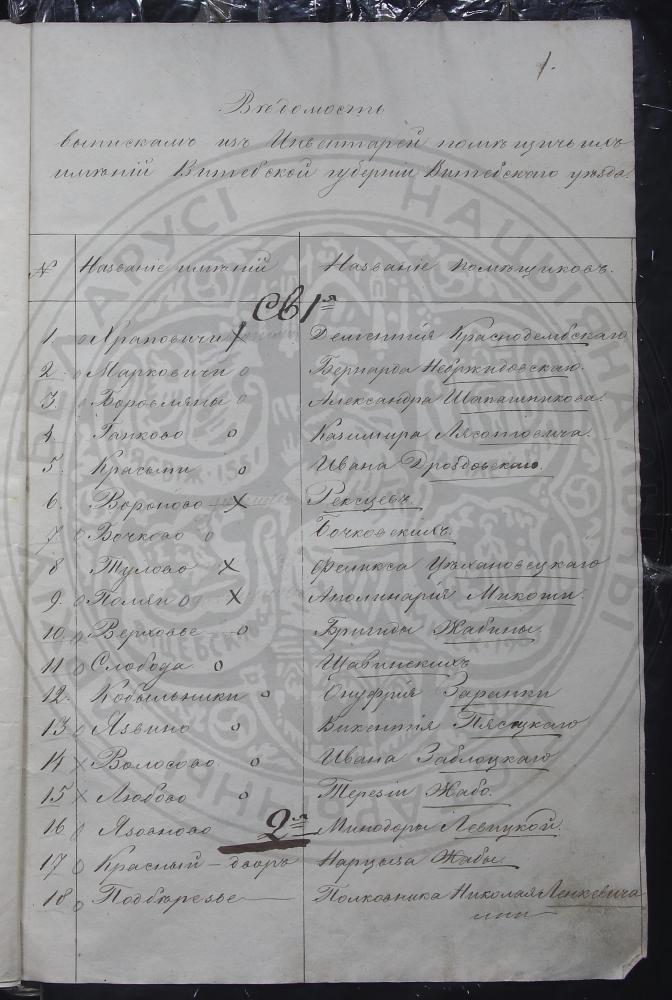 1.
Вѣдомость
выпискамъ изъ Инвентарей помѣщичьихъ
имѣній Витебской губерніи Витебскаго уѣзда.
№ Названіе имѣній Названіе помѣщиковъ.
Св 1я
1. Храповичи Дементія Краснодембскаго
2. Марковичи Бернарда Небржидовскаго.
3. Воровляны Александра Шапашникова.
4. Гапково Казимира Лясотовича.
5. Красыни Ивана Дроздовскаго.
6. Вороново Рексцевъ.
7 Бочково Бочковскихъ.
8 Тулово Феликса Цѣхановецкаго
9. Поляи Аполинарія Микоши.
10. Верховье Бригиды Жабины
11 Слобода Щавинскихъ
12. Кобыльники Онуфрія Заранки
13 Язвино Викентія Пясецкаго
14 Волосово Ивана Заблоцкаго
15 Любово Терезіи Жабо.
2я
16 Язовново Минодоры Левицкой.
17 Красный-дворъ Нарцыза Жабы
18 Подберезье Полковника Николая Ленкевича
НАЦЫЯНАЛЬНЫ
БЕЛАРУСІ